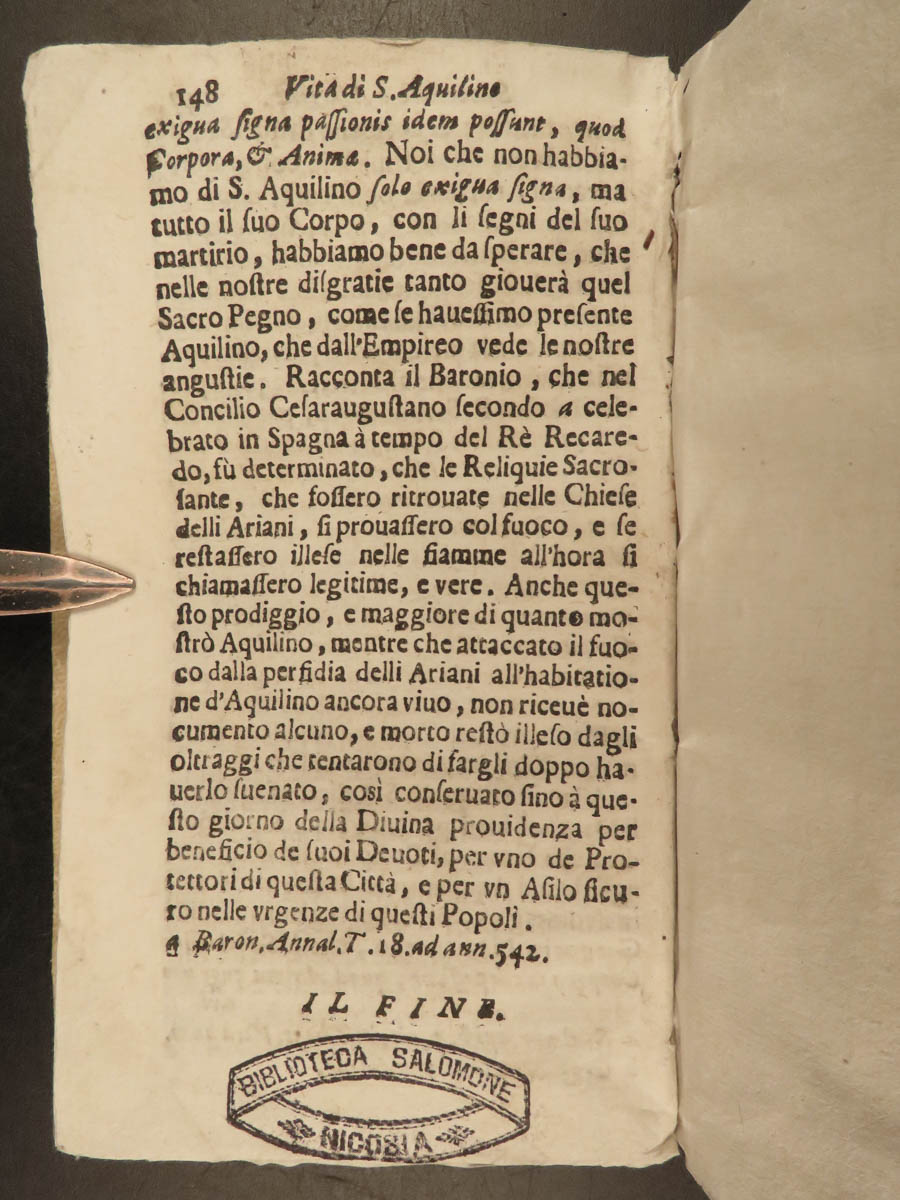 148 Vita di S. Aquilino
exigua ſigna paſſionis idem poſſunt, quod
Corpora, & Anima. Noi che non habbia-
mo di S. Aquilino ſolo exigua ſigna, ma
tutto il ſuo Corpo, con li ſegni del ſuo
martirio, habbiamo bene da ſperare, che
nelle noſtre diſgratie tanto giouerà quel
Sacro Pegno, come ſe haueſſimo preſente
Aquilino, che dall'Empireo vede le noſtre
anguſtie. Racconta il Baronio, che nel
Concilio Ceſarauguſtano ſecondo a cele-
brato in Spagna à tempo del Rè Recare-
do, fù determinato, che le Reliquie Sacro-
ſante, che foſſero ritrouate nelle Chieſe
delli Ariani, ſi prouaſſero col fuoco, e ſe
reſtaſſero illeſe nelle fiamme all'hora ſi
chiamaſſero legitime, e vere. Anche que-
ſto prodiggio, e maggiore di quanto mo-
ſtrò Aquilino, mentre che attaccato il fuo-
co dalla perfidia delli Ariani all'habitatio-
ne d'Aquilino ancora viuo, non riceuè no-
cumento alcuno, e morto reſtò illeſo dagli
oltraggi che tentarono di fargli doppo ha-
uerlo ſuenato, così conſeruato ſino à que-
ſto giorno della Diuina prouidenza per
beneficio de ſuoi Deuoti, per vno de Pro-
tettori di queſta Città, e per vn Aſilo ſicu-
ro nelle vrgenze di queſti Popoli.
a Baron. Annal. T. 18. ad ann. 542.
IL FINE.
BIBLIOTECA SALOMONE
NICOSIA